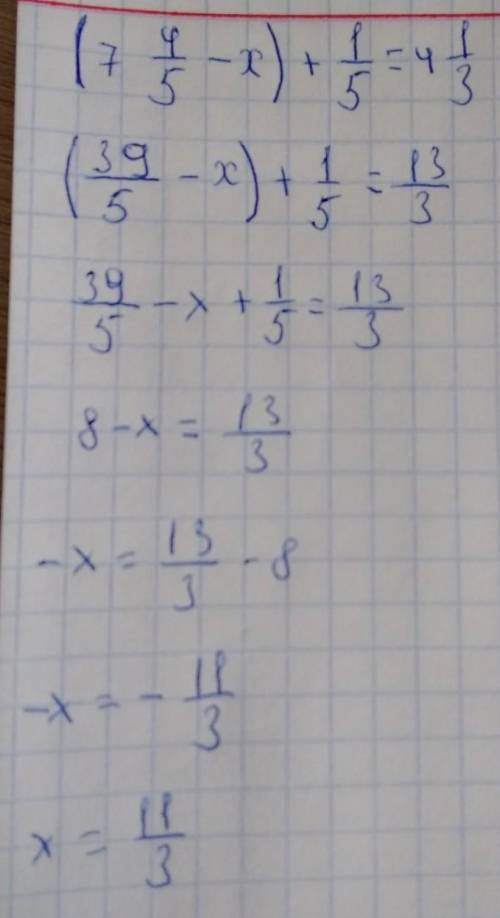 (7 4/5 - x) + 1/5 = 4 1/3
(39/5 - x) + 1/5 = 13/3
39/5 - x + 1/5 = 13/3
8 - x = 13/3
-x = 13/3 - 8
-x = - 11/3
x = 11/3